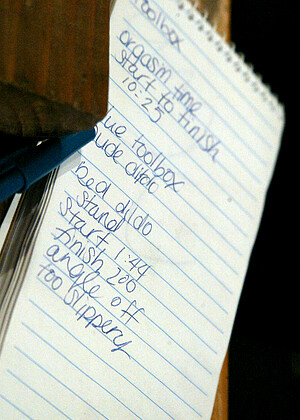 toolbox
orgasm time
start to finish
10:25
lue toolbox
nude dildo
dildo
stand
Start 1:44
finish 200
angle off
too slippery